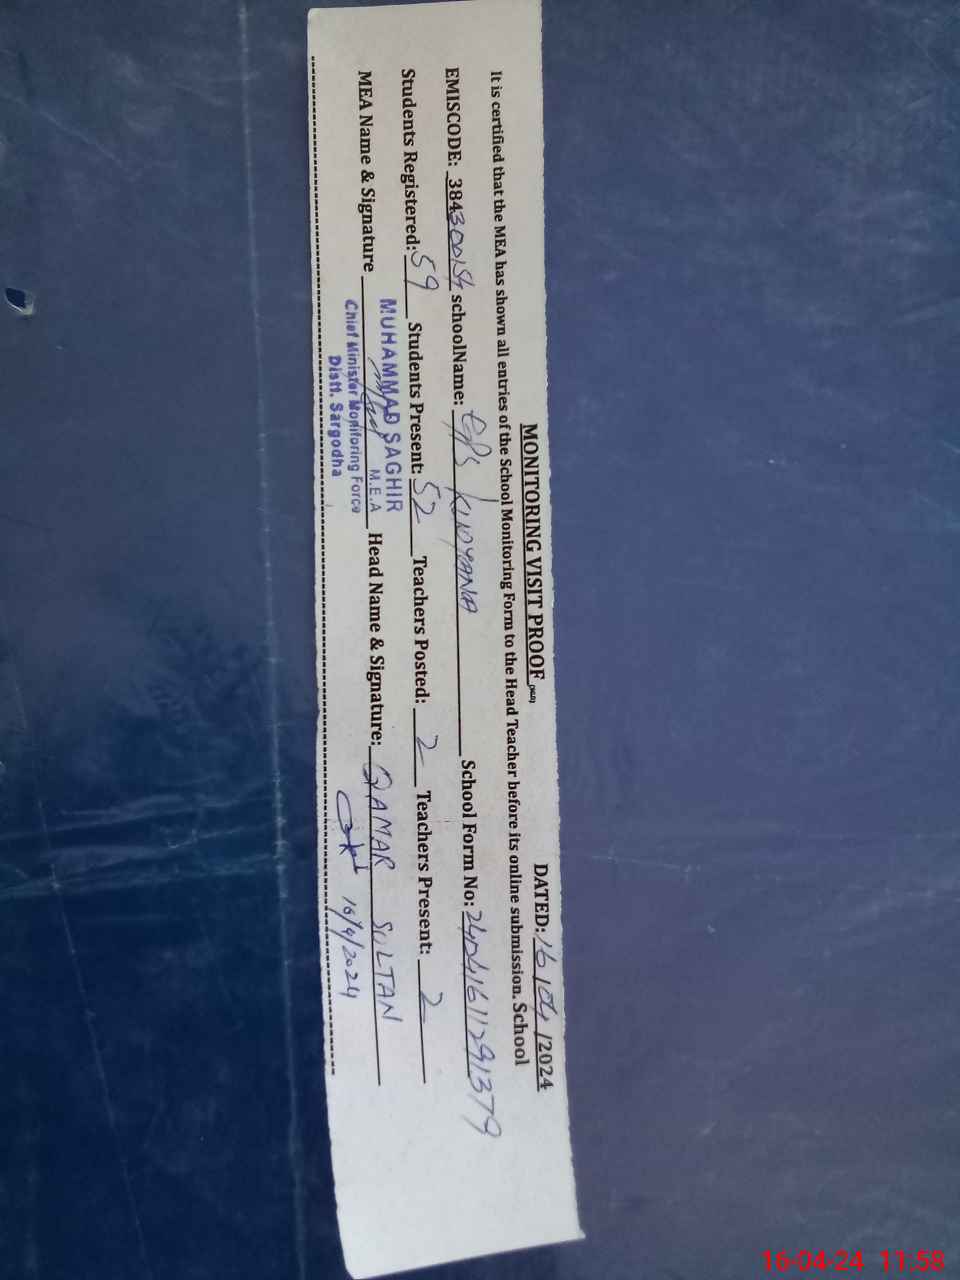 MONITORING VISIT PROOF
DATED: 16/04/2024
It is certified that the MEA has shown all entries of the School Monitoring Form to the Head Teacher before its online submission. School
EMISCODE: 38430015 schoolName: GPS KINDYANA School Form No: 24041611291379
Students Registered: 59 Students Present: 52 Teachers Posted: 2 Teachers Present: 2
MEA Name & Signature Head Name & Signature: QAMAR SULTAN
MUHAMMAD SAGHIR
M.E.A
Chief Minister Monitoring Force
Distt. Sargodha
16/4/2024
16-04-24 11:58